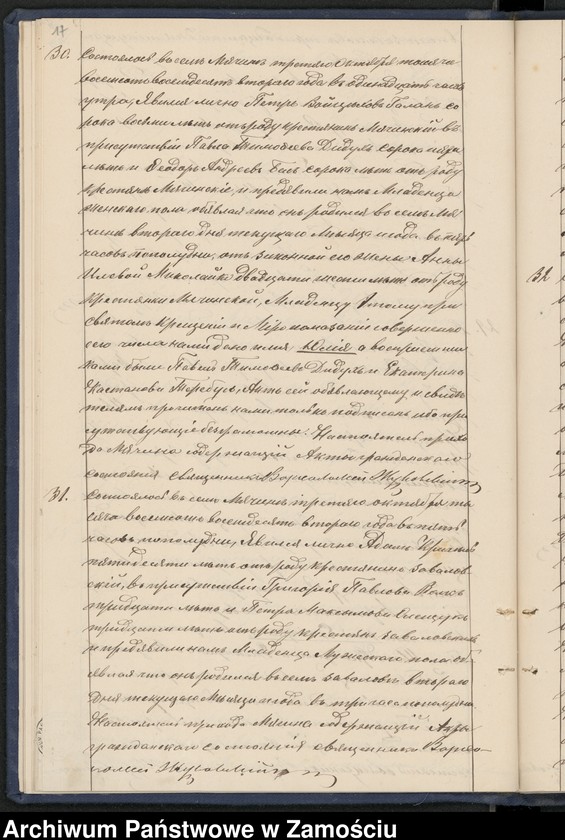 17
30. Состоялось въ селѣ Мячинъ третяго Октября тысяча
восемсотъ восемдесятъ втораго года въ одинадцать часовъ
утра, Явился лично Петръ Войцеховъ Галанъ со
рока восми лѣтъ отъ роду крестянинъ Мячинскій въ
присутствіи Павла Тимофеева Дидухъ сорока
лѣтъ и Ѳеодоръ Андреевъ Бась сорока лѣтъ отъ роду
крестянъ Мячинскіе, и предъявили намъ Младенца
женскаго пола, объявляя что онъ родился въ селѣ Мя
чинъ втораго дня текущаго Мѣсяца и года въ
часовъ пополудни, отъ законной его жены Анны
Николайко двадцати лѣтъ отъ роду
крестянки Мячинской, Младенцу этому при
святомъ крещеніи и Мѵропомазаніи совершенно
сего числа нами дано имя Юлія а воспріемни
ками были Павел Тимофеевъ Дидухъ и Екатерина
Теребусъ, Актъ сей объявляющему и свидѣ
телямъ прочитанъ, нами только подписанъ ибо при
сутствующіе безграмотны. Настоятель прихо
да Мячина содержащій Акты гражданскаго
состоянія священникъ Варфоломей
31. Состоялось въ селѣ Мячинъ третяго октября ты
сяча восемсотъ восемдесятъ втораго года въ пять
часовъ пополудни, Явился лично Адамъ
пятидесяти лѣтъ отъ роду крестянинъ Заваловъ
скій, въ присутствіи Григорія Павлова Волосъ
тридцати лѣтъ и Петра Максимова Олещукъ
тридцати лѣтъ отъ роду крестянъ Заваловскихъ
и предъявили намъ Младенца Мужескаго пола объ
являя что онъ родился въ селѣ Заваловъ втораго
дня текущаго Мѣсяца и года въ три часа пополудни
Настоятель прихода Мячина содержащій Акты
гражданскаго состоянія священникъ Варфо
ломей
32
Archiwum Państwowe w Zamościu